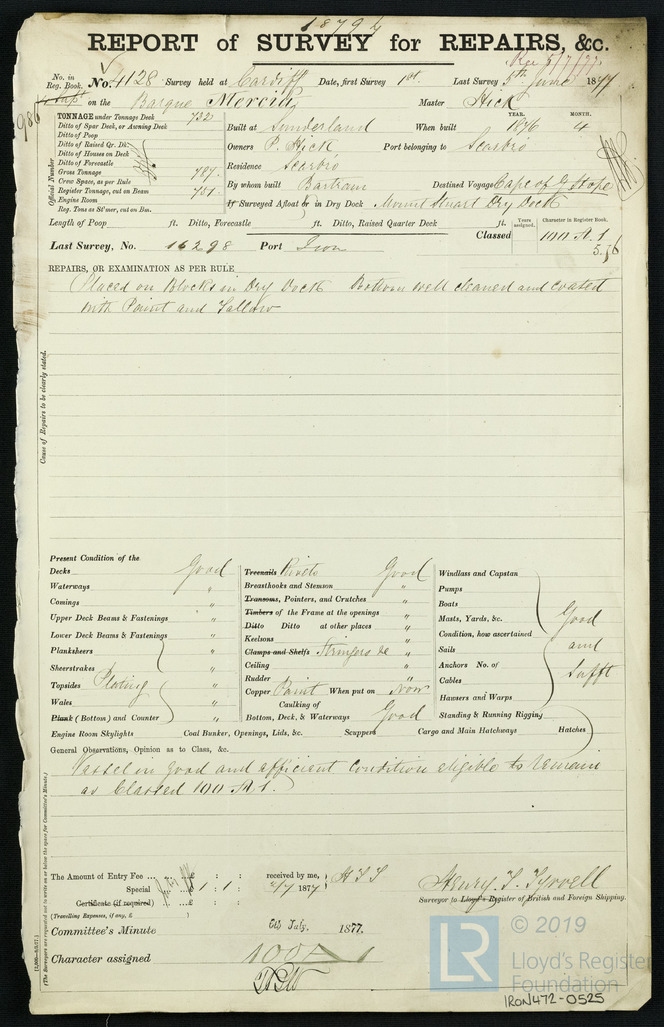 REPORT of SURVEY for REPAIRS, &c.
Rec 5/7/77
No. in Reg. Book. No. 4128 Survey held at Cardiff Date, first Survey 1st Last Survey 5th June 1877
986 on the Barque Mercia Master Hick
TONNAGE under Tonnage Deck 732
Ditto of Spar Deck, or Awning Deck
Ditto of Poop
Ditto of Raised Qr. Dk.
Ditto of Houses on Deck
Ditto of Forecastle
Gross Tonnage 787.
Crew Space, as per Rule
Register Tonnage, cut on Beam 751.
Engine Room
Reg. Tons as St'mer, cut on Bm.
Official Number
Built at Sunderland When built YEAR. 1876 MONTH. 4
Owners P. Hick Port belonging to Scarbro
Residence Scarbro
By whom built Bartram Destined Voyage Cape of G Hope
If Surveyed Afloat or in Dry Dock Mount Stuart Dry Dock
Length of Poop ft. Ditto, Forecastle ft. Ditto, Raised Quarter Deck ft.
Classed Years assigned. Character in Register Book. 100 A 1
5.76
Last Survey, No. 16298 Port Iron
REPAIRS, OR EXAMINATION AS PER RULE
Placed on Blocks in Dry Dock Bottom well cleaned and coated
with Paint and Tallow
Cause of Repairs to be clearly stated.
Present Condition of the
Decks Good
Waterways "
Comings "
Upper Deck Beams & Fastenings "
Lower Deck Beams & Fastenings "
Planksheers "
Sheerstrakes "
Topsides Plating "
Wales "
Plank (Bottom) and Counter "
Treenails Rivets Good
Breasthooks and Stemson "
Transoms, Pointers, and Crutches "
Timbers of the Frame at the openings "
Ditto Ditto at other places "
Keelsons "
Clamps and Shelfs Stringers &c "
Ceiling "
Rudder "
Copper Paint When put on Now
Caulking of
Bottom, Deck, & Waterways Good
Windlass and Capstan
Pumps
Boats
Masts, Yards, &c.
Condition, how ascertained
Sails
Anchors No. of
Cables
Hawsers and Warps
Standing & Running Rigging
Good and Safft
Engine Room Skylights Coal Bunker, Openings, Lids, &c. Scuppers Cargo and Main Hatchways Hatches
General Observations, Opinion as to Class, &c.
Vessel in good and efficient condition eligible to remain
as Classed 100 A 1.
The Amount of Entry Fee ... £ : : received by me, H T T
Special ... £ 1 : 1 : 2/7 1877
Certificate (if required) ... : :
(Travelling Expenses, if any, £ )
Henry T. Tyrrell
Surveyor to Lloyd's Register of British and Foreign Shipping.
Committee's Minute 6th July. 1877.
Character assigned 100 A 1
(The Surveyors are requested not to write on or below the space for Committee's Minute.)
© 2019
LR Lloyd's Register
Foundation
IRON472-0525